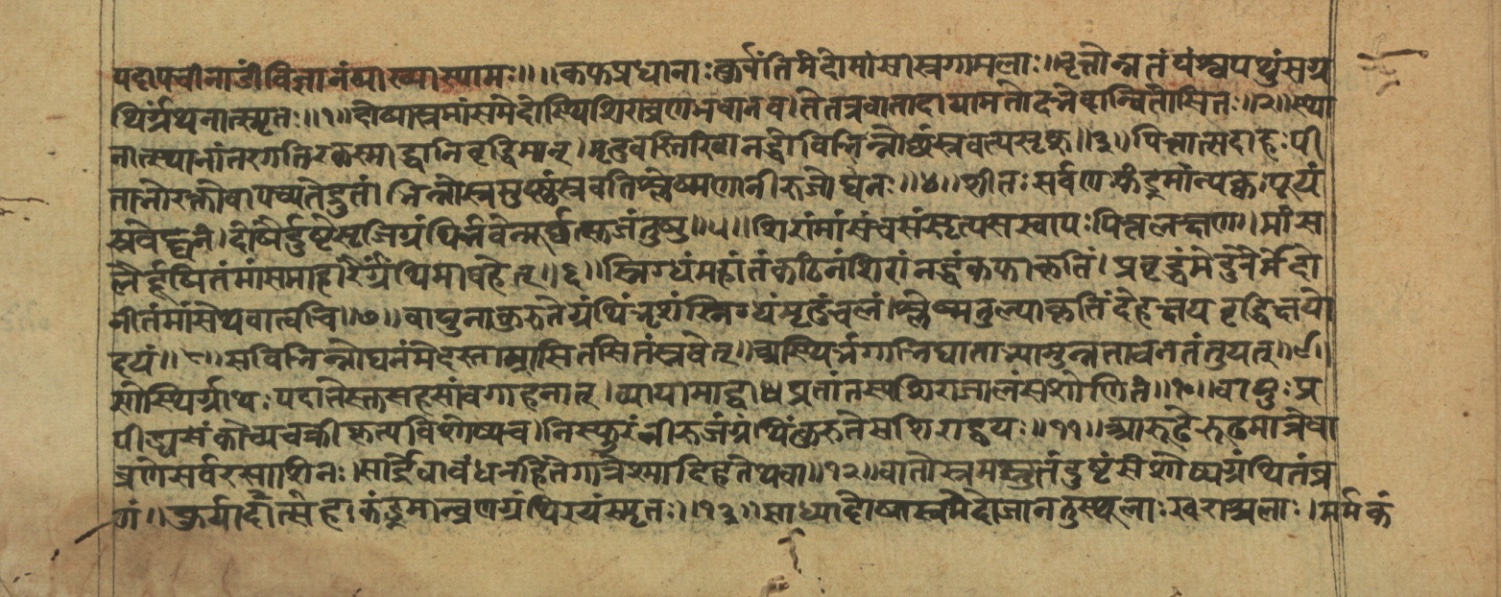 पदापचीनाडीविज्ञानंव्याख्यास्यामः॥॥कफप्रधानाःकुर्वंतिमेदोमांसास्रगामलाः॥वृत्तोन्नतंयंश्वयथुंसग्र
थिर्ग्रथनात्स्मृतः॥१॥दोषास्रमांसमेदोस्थिशिराव्रणभवानव।तेतत्रवातादायामतोदभेदान्वितोसितः॥२॥स्था
नात्स्थानांतरगतिरकस्माद्धानिवृद्धिमान्।मृदुर्वस्तिरिवानद्धोविभिन्नोछंस्रवत्यसृक्॥३॥पित्तात्सदाहःपी
ताभोरक्तोवापच्यतेद्रुतं।भिन्नोस्रमुष्णंस्रवतिश्लेष्मणानीरुजोघनः॥४॥शीतःसवर्णःकंडूमान्पक्वःपूयं
स्रवेद्घनं।दोषैर्दुष्टेसृजिग्रंथिर्भवेन्मूर्छत्सुजंतुषु॥५॥शिरामांसंचसंसृत्यसस्वापःपित्तलक्षणः।मांस
लैर्दूषितंमांसमाहारैर्ग्रंथिमावहेत्॥६॥स्निग्धंमहांतंकठिनंशिरानद्धंकफाकृतिं।प्रवृद्धंमेदुरैर्मेदो
नीतंमांसेथवात्वचि॥७॥वायुनाकुरुतेग्रंथिंभृशंस्निग्धंमृदुंचलं।श्लेष्मतुल्याकृतिंदेहक्षयवृद्धिक्षयो
दयं॥८॥सविभिन्नोघनंमेदस्ताम्रासितसितंस्रवेत्॥अस्थिभंगाभिघाताभ्यामुन्नतावनतंतुयत्॥९॥
सोस्थिग्रंथिःपदातेस्तुसहसांवगाहनात्।व्यायामाद्वाधप्रतांतस्यशिराजालंसशोणितं॥१०॥वायुःप्र
पीड्यसंकोच्यवक्रीकृत्यविशोष्यच।निस्फुरंनीरुजंग्रंथिंकुरुतेसशिराह्वयः॥११॥अरूढेरूढमात्रेवा
व्रणेसर्वरसाशिनः।सार्द्रेवाबंधनहितेगात्रेश्माभिहतेथवा॥१२॥वातोस्रमस्रुतंदुष्टंसंशोष्यग्रंथितंव्र
णं॥कुर्यार्दात्सहाकंडूमान्व्रणग्रंथिरयंस्मृतः॥१३॥साध्यादोषास्रमेदोजानतुस्थूलाःखराश्चलाः।मर्मकं